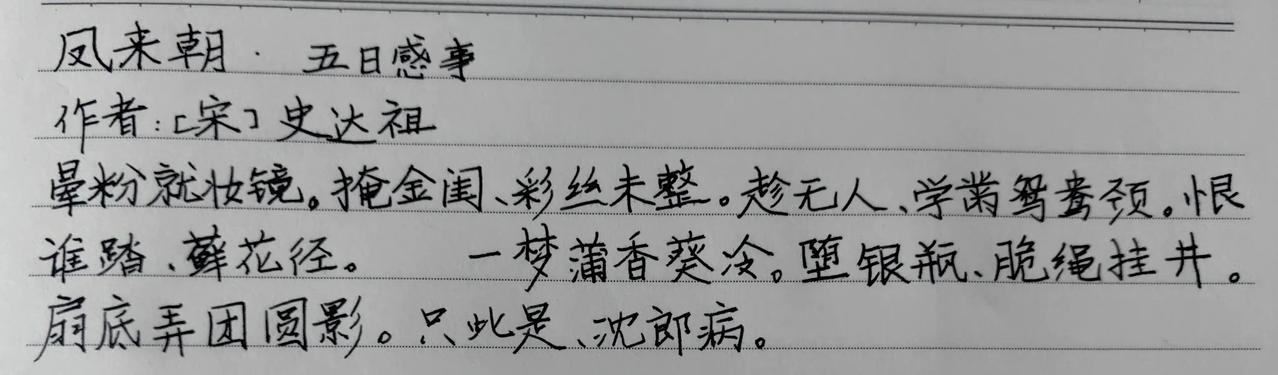 凤来朝·五日感事
作者:[宋]史达祖
晕粉就妆镜。掩金闺、彩丝未整。趁无人、学萦鸳鸯颈。恨
谁踏、藓花径。 一梦蒲香葵冷。堕银瓶、脆绳挂井。
扇底弄团圆影。只此是、沈郎病。